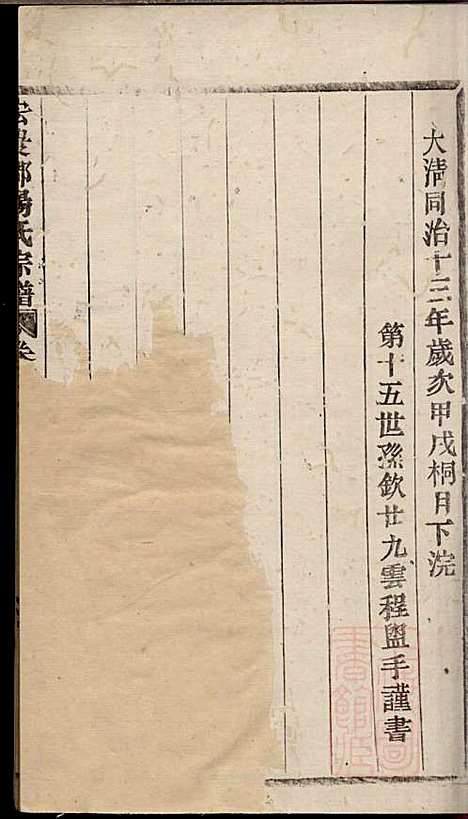 大清同治十三年歲次甲戌桐月下浣
第十五世孫欽廿九雲程盥手謹書
楊氏宗譜
卷